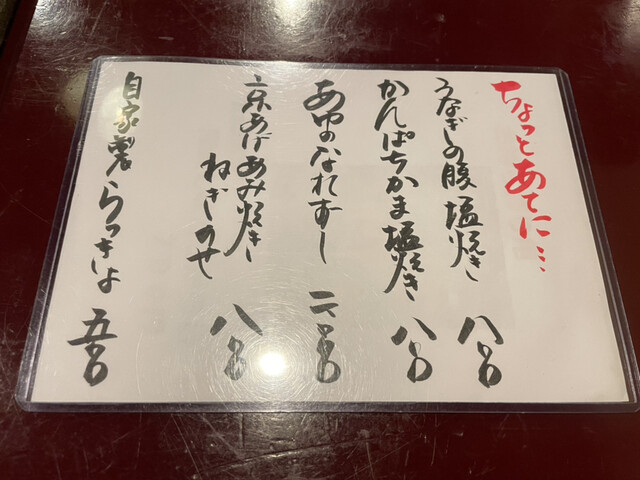 ちょっとあてに…
うなぎの腹塩焼き 八〇〇
かんぱちかま塩焼き 八〇〇
あゆのなれずし
京あげあみ焼き
ねぎのせ 八〇〇
自家製らっきょ 五〇〇